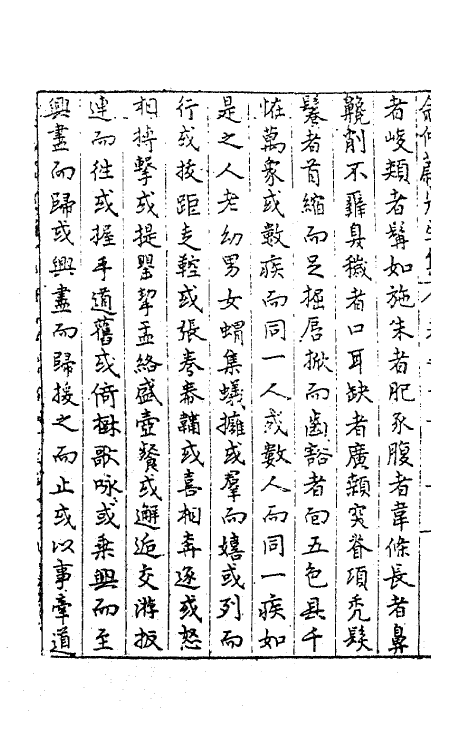 者峻頰者髯如施朱者肥豕腹者葦條長者鼻
鼽削不辨臭穢者口耳缺者廣顙突脊項禿髮
鬈者首縮而足掘唇掀而齒豁者面五色具千
恠萬象或數疾而同一人或數人而同一疾如
是之人老幼男女蝟集蟻擁或羣而嬉或列而
行或投距走輕或張弮幕鞴或喜相奔逐或怒
相搏擊或提罌挈盂絡盛壺餐或邂逅交游扳
連而往或握手道舊或倚樹歌咏或乘興而至
興盡而歸或興盡而歸援之而止或以事牽道